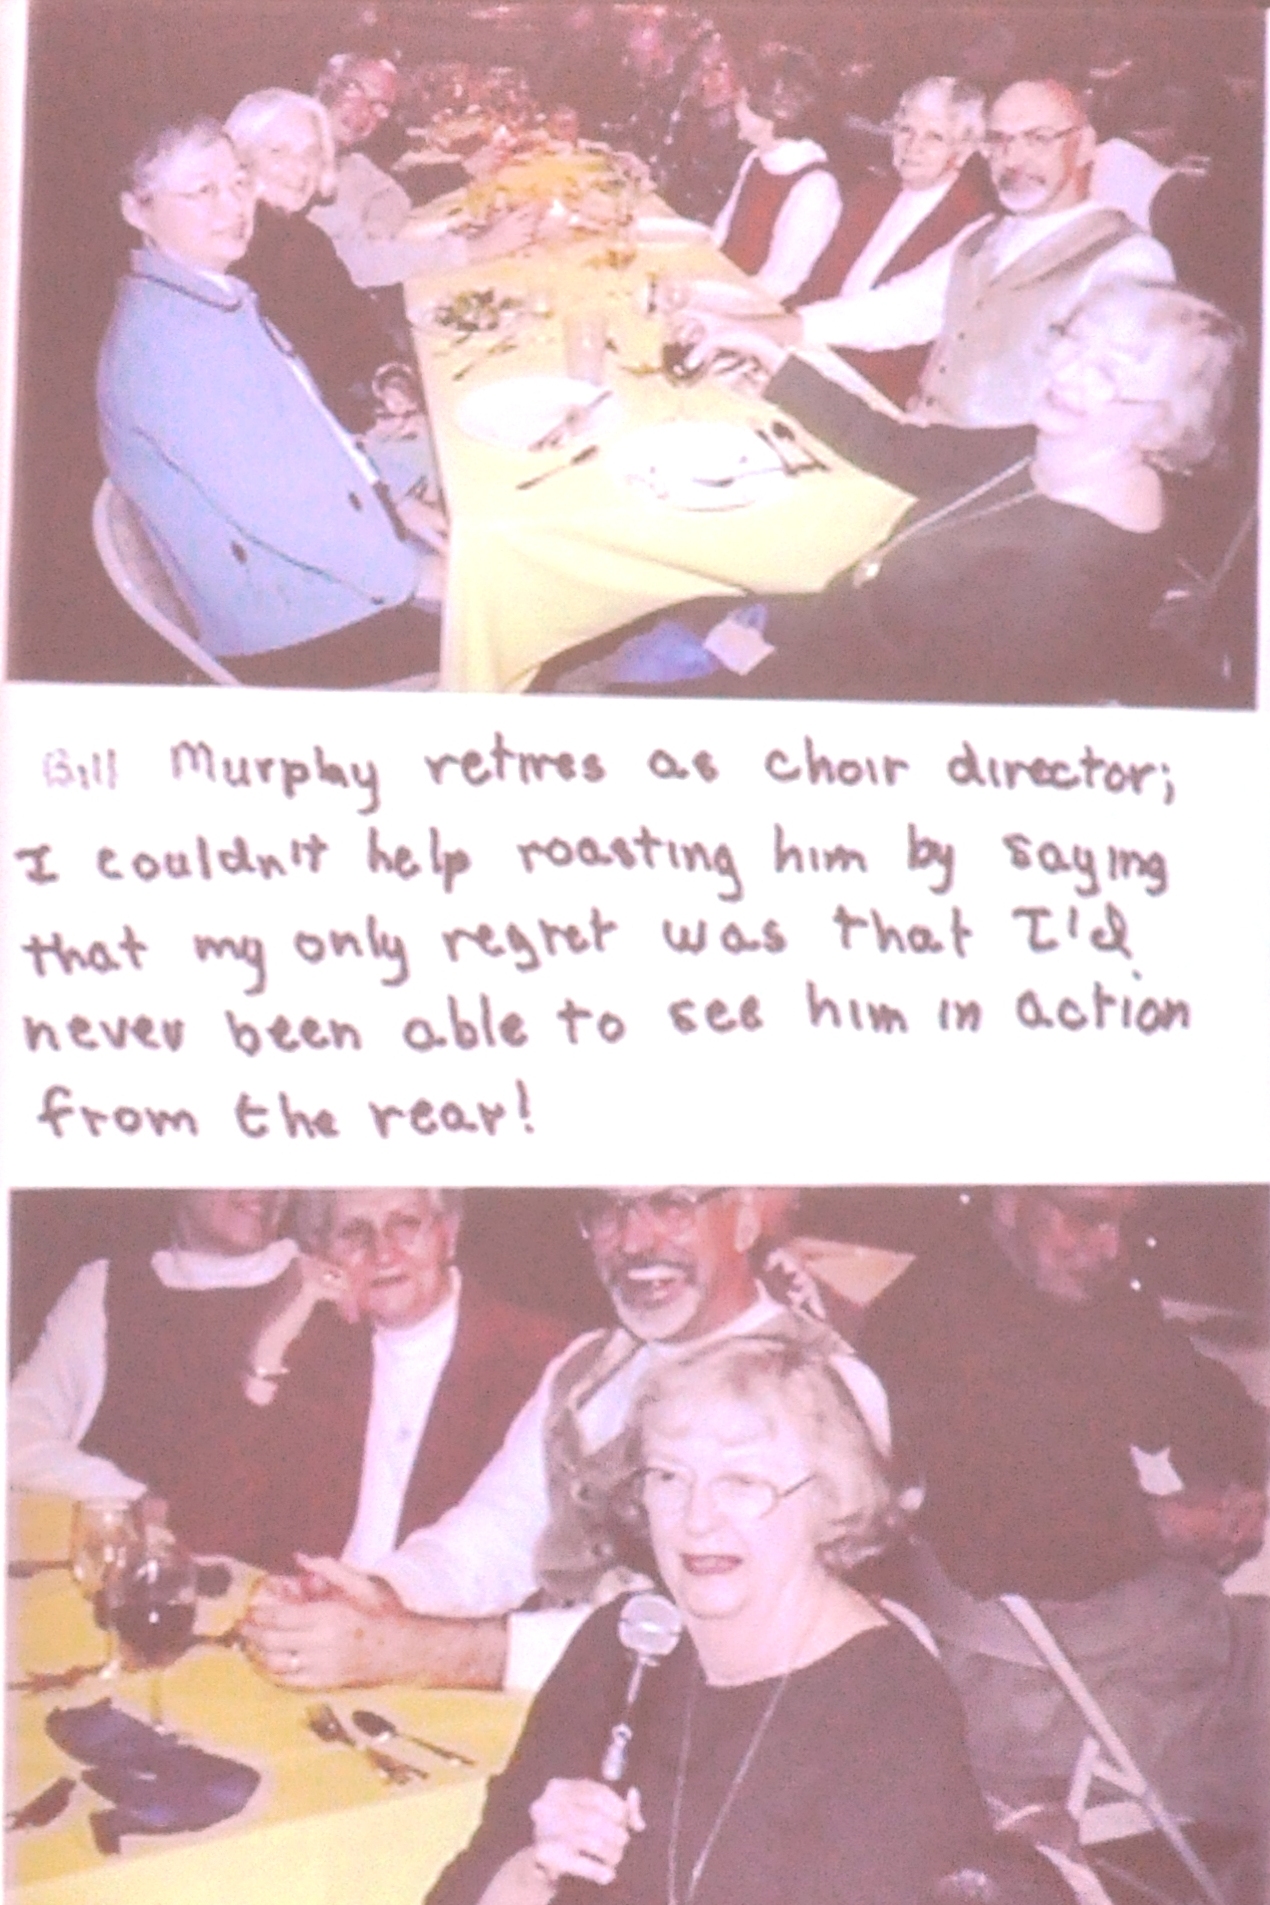 Bill Murphy retires as choir director;
I couldn't help roasting him by saying
that my only regret was that I'd
never been able to see him in action
from the rear!